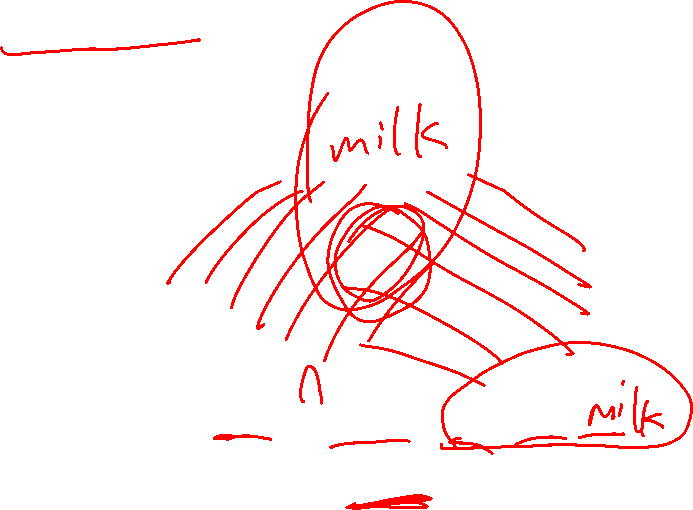 milk
milk